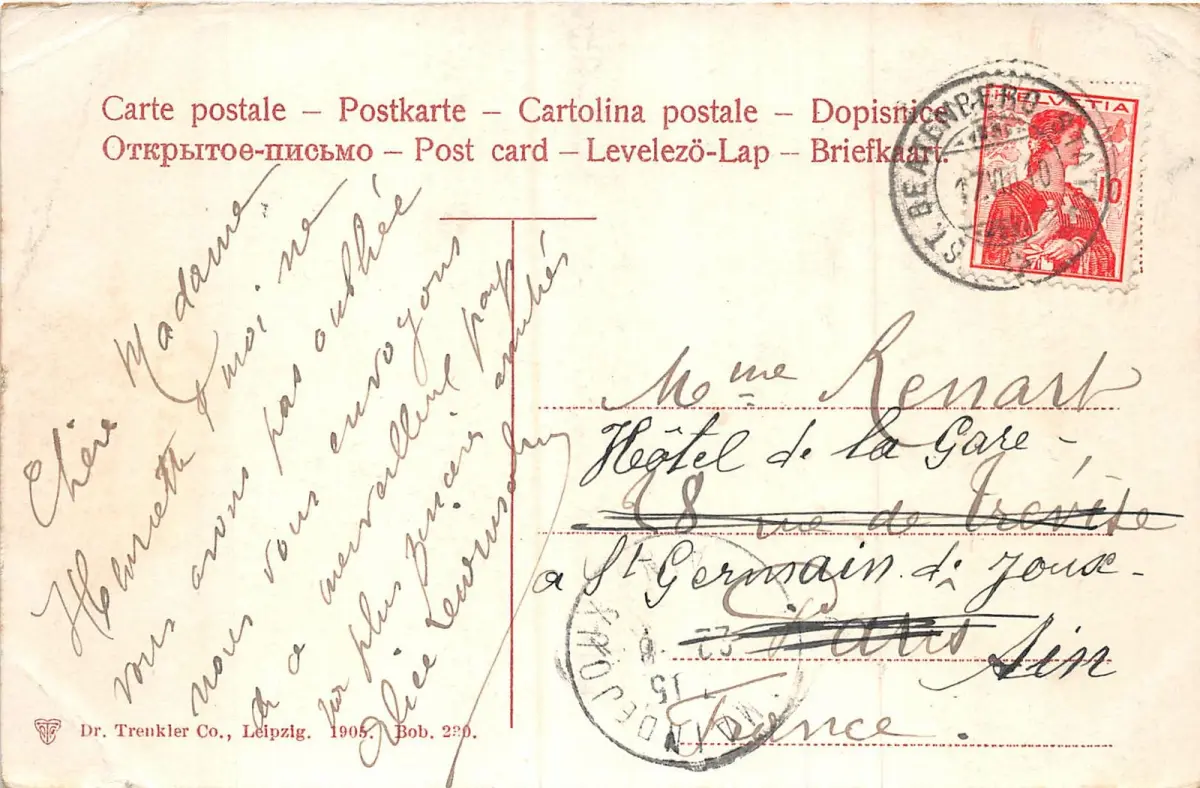 Carte postale – Postkarte – Cartolina postale – Dopisnice
Открытое-письмо – Post card – Levelező-Lap – Briefkaart.
HELVETIA
10
ST. BEATENBERG
Chère Madame
Henriette & moi ne
vous avons pas oubliée
nous vous envoyons
de
merveilleux pays
nos plus sincères amitiés
Alice
Mme Renart
Hôtel de la Gare -
28 rue de Trévise
a St Germain de Joux -
Paris Ain
France.
Dr. Trenkler Co., Leipzig. 1905. Bob. 220.